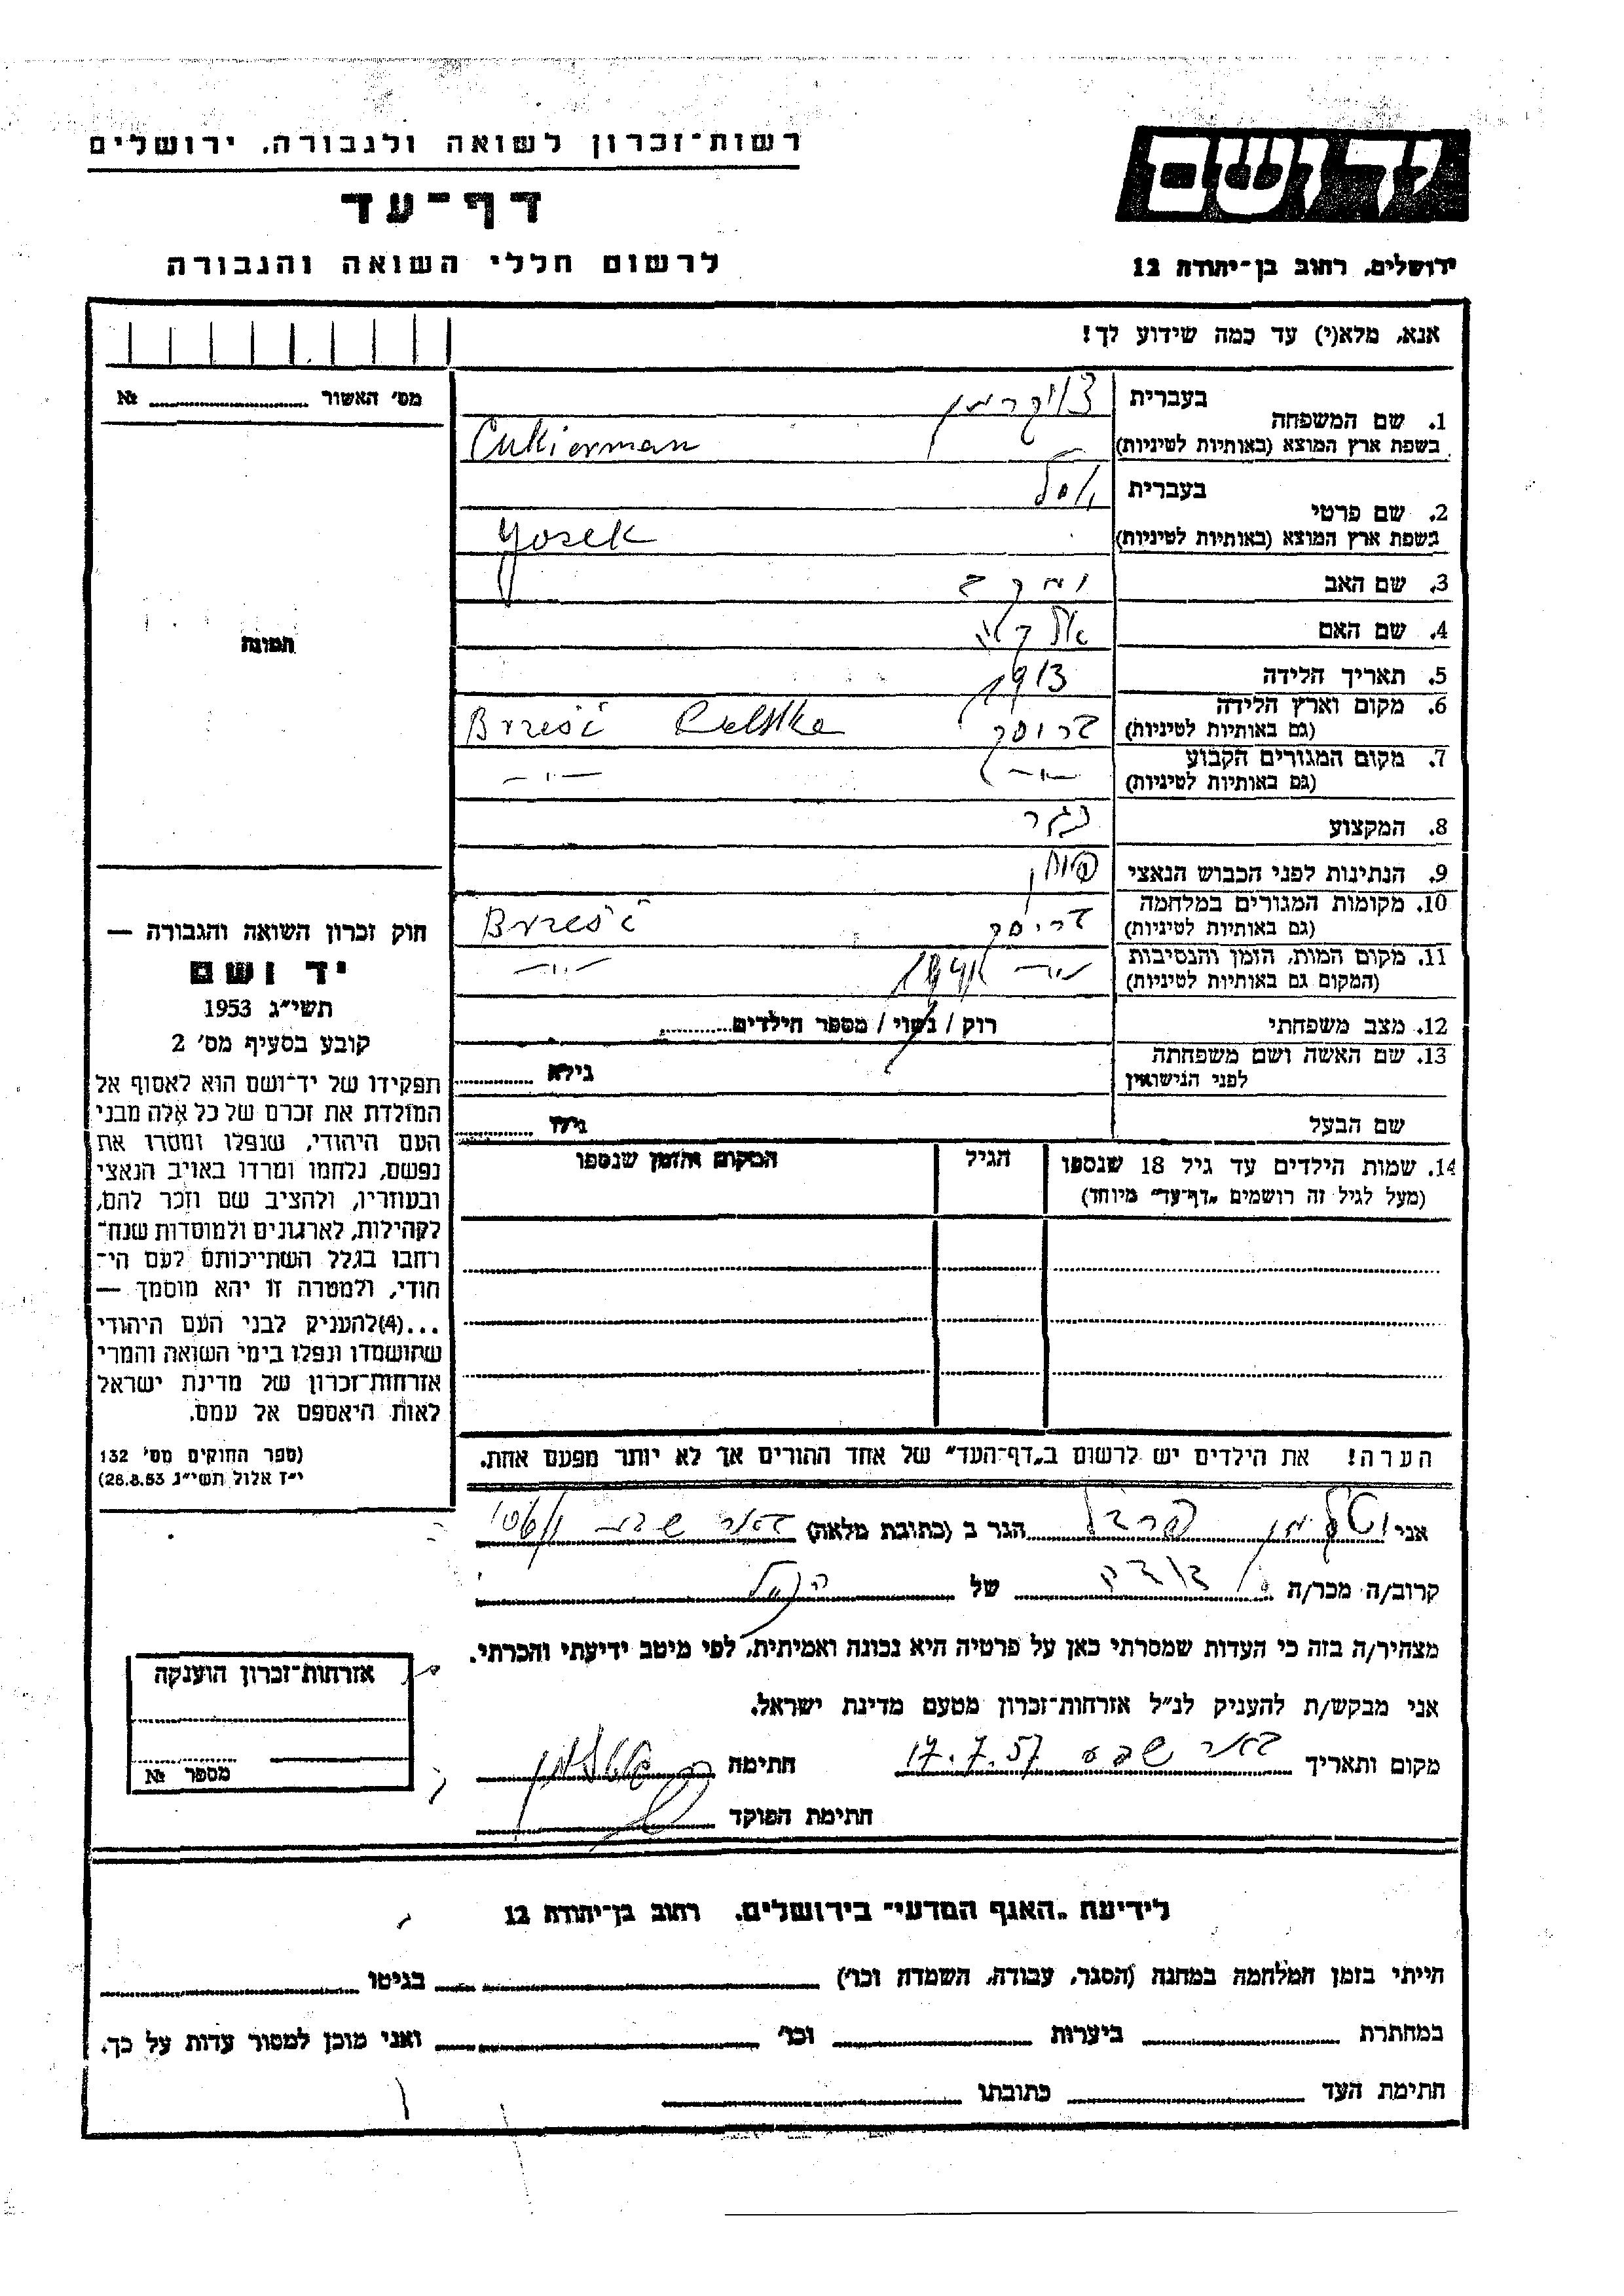 רשות־זכרון לשואה ולגבורה, ירושלים
דף־עד
לרשום חללי השואה והגבורה
יד ושם
ירושלים, רחוב בן־יהודה 12
אנא, מלא(י) עד כמה שידוע לך!
מס' האשור № 
תמונה
1. שם המשפחה בעברית צוקרמן
בשפת ארץ המוצא (באותיות לטיניות) Cukierman
2. שם פרטי בעברית
בשפת ארץ המוצא (באותיות לטיניות) Yosek
3. שם האב
4. שם האם
5. תאריך הלידה 1913
6. מקום וארץ הלידה (גם באותיות לטיניות) בריסק Brześć
7. מקום המגורים הקבוע (גם באותיות לטיניות) —״— —״—
8. המקצוע נגר
9. הנתינות לפני הכבוש הנאצי פולין
10. מקומות המגורים במלחמה (גם באותיות לטיניות) בריסק Brześć
11. מקום המות, הזמן והנסיבות (המקום גם באותיות לטיניות) —״— —״—
12. מצב משפחתי רוק / נשוי / מספר הילדים
13. שם האשה ושם משפחתה לפני הנישואין גילא
שם הבעל גילו
14. שמות הילדים עד גיל 18 שנספו הגיל המקום והזמן שנספו
(מעל לגיל זה רושמים „דף־עד״ מיוחד)
הערה! את הילדים יש לרשום ב„דף־העד״ של אחד ההורים אך לא יותר מפעם אחת.
חוק זכרון השואה והגבורה —
יד ושם
תשי״ג 1953
קובע בסעיף מס' 2
תפקידו של יד־ושם הוא לאסוף אל
המולדת את זכרם של כל אלה מבני
העם היהודי, שנפלו ומסרו את
נפשם, נלחמו ומרדו באויב הנאצי
ובעוזריו, ולהציב שם וזכר להם,
לקהילות, לארגונים ולמוסדות שנח־
רחבו בגלל השתייכותם לעם הי־
חודי, ולמטרה זו יהא מוסמך —
...(4)להעניק לבני העם היהודי
שהושמדו ונפלו בימי השואה והמרי
אזרחות־זכרון של מדינת ישראל
לאות היאספם אל עמם.
(ספר החוקים מס' 132
י״ז אלול תשי״ג 28.8.53)
אני הגר ב (כתובת מלאה) באר שבע
קרוב/ה מכר/ה של הנ״ל
מצהיר/ה בזה כי העדות שמסרתי כאן על פרטיה היא נכונה ואמיתית, לפי מיטב ידיעתי והכרתי.
אני מבקש/ת להעניק לנ״ל אזרחות־זכרון מטעם מדינת ישראל.
מקום ותאריך באר שבע 17.7.57 חתימה
חתימת הפוקד
אזרחות־זכרון הוענקה
מספר №
לידיעת „האגף המדעי״ בירושלים. רחוב בן־יהודה 12
הייתי בזמן המלחמה במחנה (הסגר, עבודה, השמדה וכו') בגיטו
במחתרת ביערות וכו' ואני מוכן למסור עדות על כך.
חתימת העד כתובתו